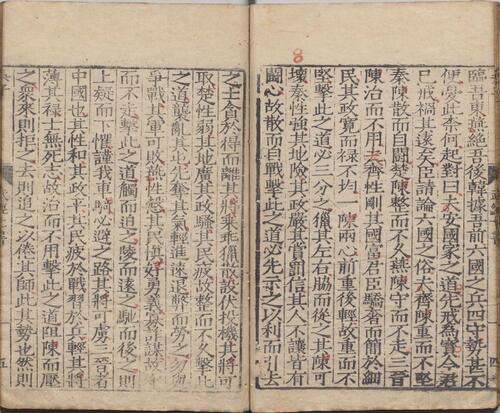 臨吾東燕絶吾後韓據吾前六國之兵四守勢甚不
便憂此奈何起對曰夫安國家之道先戒爲寶今君
已戒禍其遠矣臣請論六國之俗夫齊陳重而不堅
秦陳散而自鬬楚陳整而不久燕陳守而不走三晉
陳治而不用夫齊性剛其國富君臣驕奢而簡於細
民其政寬而禄不均一陳兩心前重後輕故重而不
堅擊此之道必三分之獵其左右脇而從之其陳可
壞秦性強其地險其政嚴其賞罰信其人不讓皆有
鬬心故散而自戰擊此之道必先示之以利而引去
之士貪於得而離其將乘乖獵散設伏投機其將可
取楚性弱其地廣其政騷其民疲故整而不久擊此
之道襲亂其屯先奪其氣輕進速退弊而勞之勿與
爭戰其軍可敗燕性慤其民慎好勇義寡詐謀故守
而不走擊此之道觸而迫之陵而遠之馳而後之則
上疑而下懼謹我車騎必避之路其將可虜三晉者
中國也其性和其政平其民疲於戰習於兵輕其將
薄其禄士無死志故治而不用擊此之道阻陳而壓
之衆來則拒之去則追之以倦其師此其勢也然則
五
8